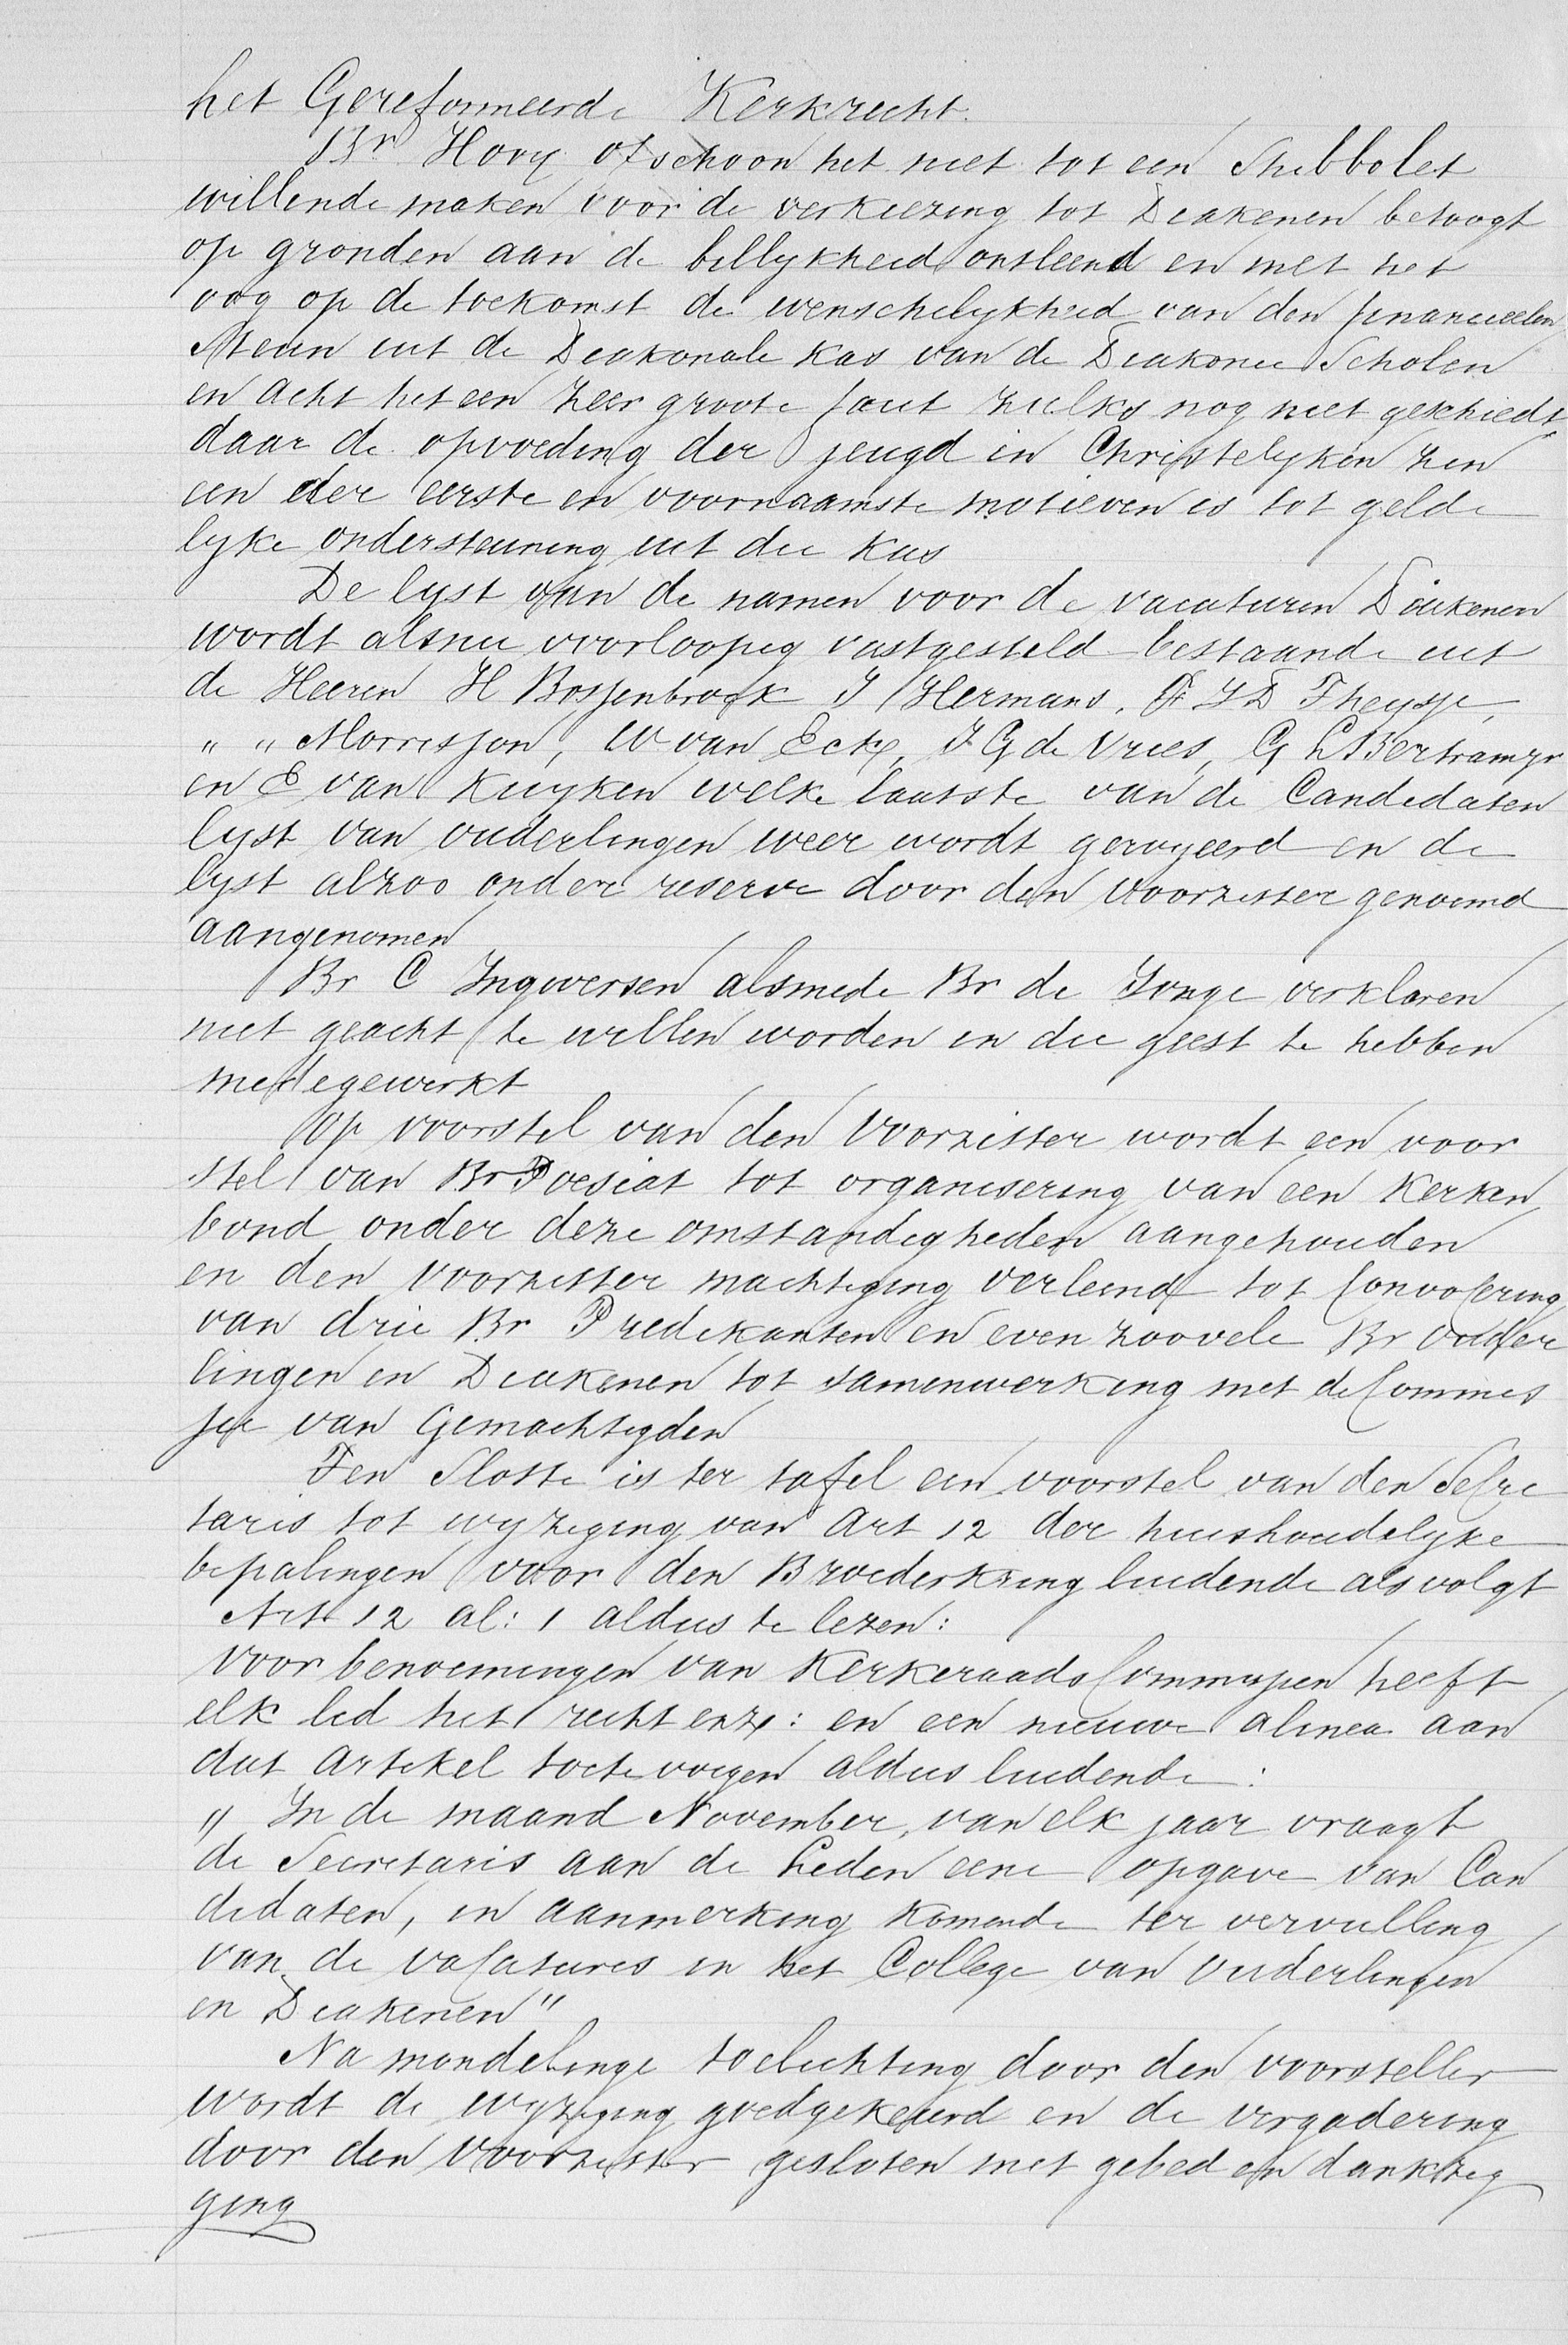 het Gereformeerde Kerkrecht.
Br Hovy ofschoon het niet tot een Shibbolet
willende maken voor de verkiezing tot Diakenen betoogt
op gronden aan de billijkheid ontleend en met het
oog op de toekomst de wenschelijkheid van den financieelen
Steun uit de Diakonale kas van de Diakonie Scholen
en acht het een zeer groote fout zulks nog niet geschiedt,
daar de opvoeding der jeugd in Christelijken zin
een der eerste en voornaamste motieven is tot gelde
lijke ondersteuning uit die kas
De lijst van de namen voor de vacaturen Diakenen
wordt alsnu voorloopig vastgesteld bestaande uit
de Heeren H Bossenbroek J Hermans, F J D Theyse,
" " Morrisson, W van Eck, J G de Vries, G L Bertram jr
en E van Kuyken welke laatste van de Candidaten
lijst van ouderlingen weer wordt geroyeerd en de
lijst alzoo onder reserve door den voorzitter genoemd
aangenomen
Br C Ingwersen alsmede Br de Jonge verklaren
niet geacht te willen worden in die geest te hebben
medegewerkt
Op voorstel van den Voorzitter wordt een voor
stel van Br Poesiat tot organisering van een Kerken
bond onder deze omstandigheden aangehouden
en den Voorzitter machtiging verleend tot Convocering
van drie Br Predikanten en even zoovele Br Ouder
lingen en Diakenen tot samenwerking met de Commis
sie van Gemachtigden
Ten Slotte is ter tafel een voorstel van den Secre
taris tot wijziging van Art 12 der huishoudelijke
bepalingen voor den Broederkring luidende als volgt
Art 12 al: 1 aldus te lezen:
Voor benoemingen van Kerkeraads Commissien heeft
elk lid het recht enz: en een nieuwe alinea aan
dat Artikel toetevoegen aldus luidende:
" In de maand November, van elk jaar vraagt
de Secretaris aan de Leden eene opgave van Can
didaten, in aanmerking komende ter vervulling
van de vacatures in het College van Ouderlingen
en Diakenen"
Na mondelinge toelichting door den voorsteller
wordt de wijziging goedgekeurd en de vergadering
door den Voorzitter gesloten met gebed en dankzeg
ging